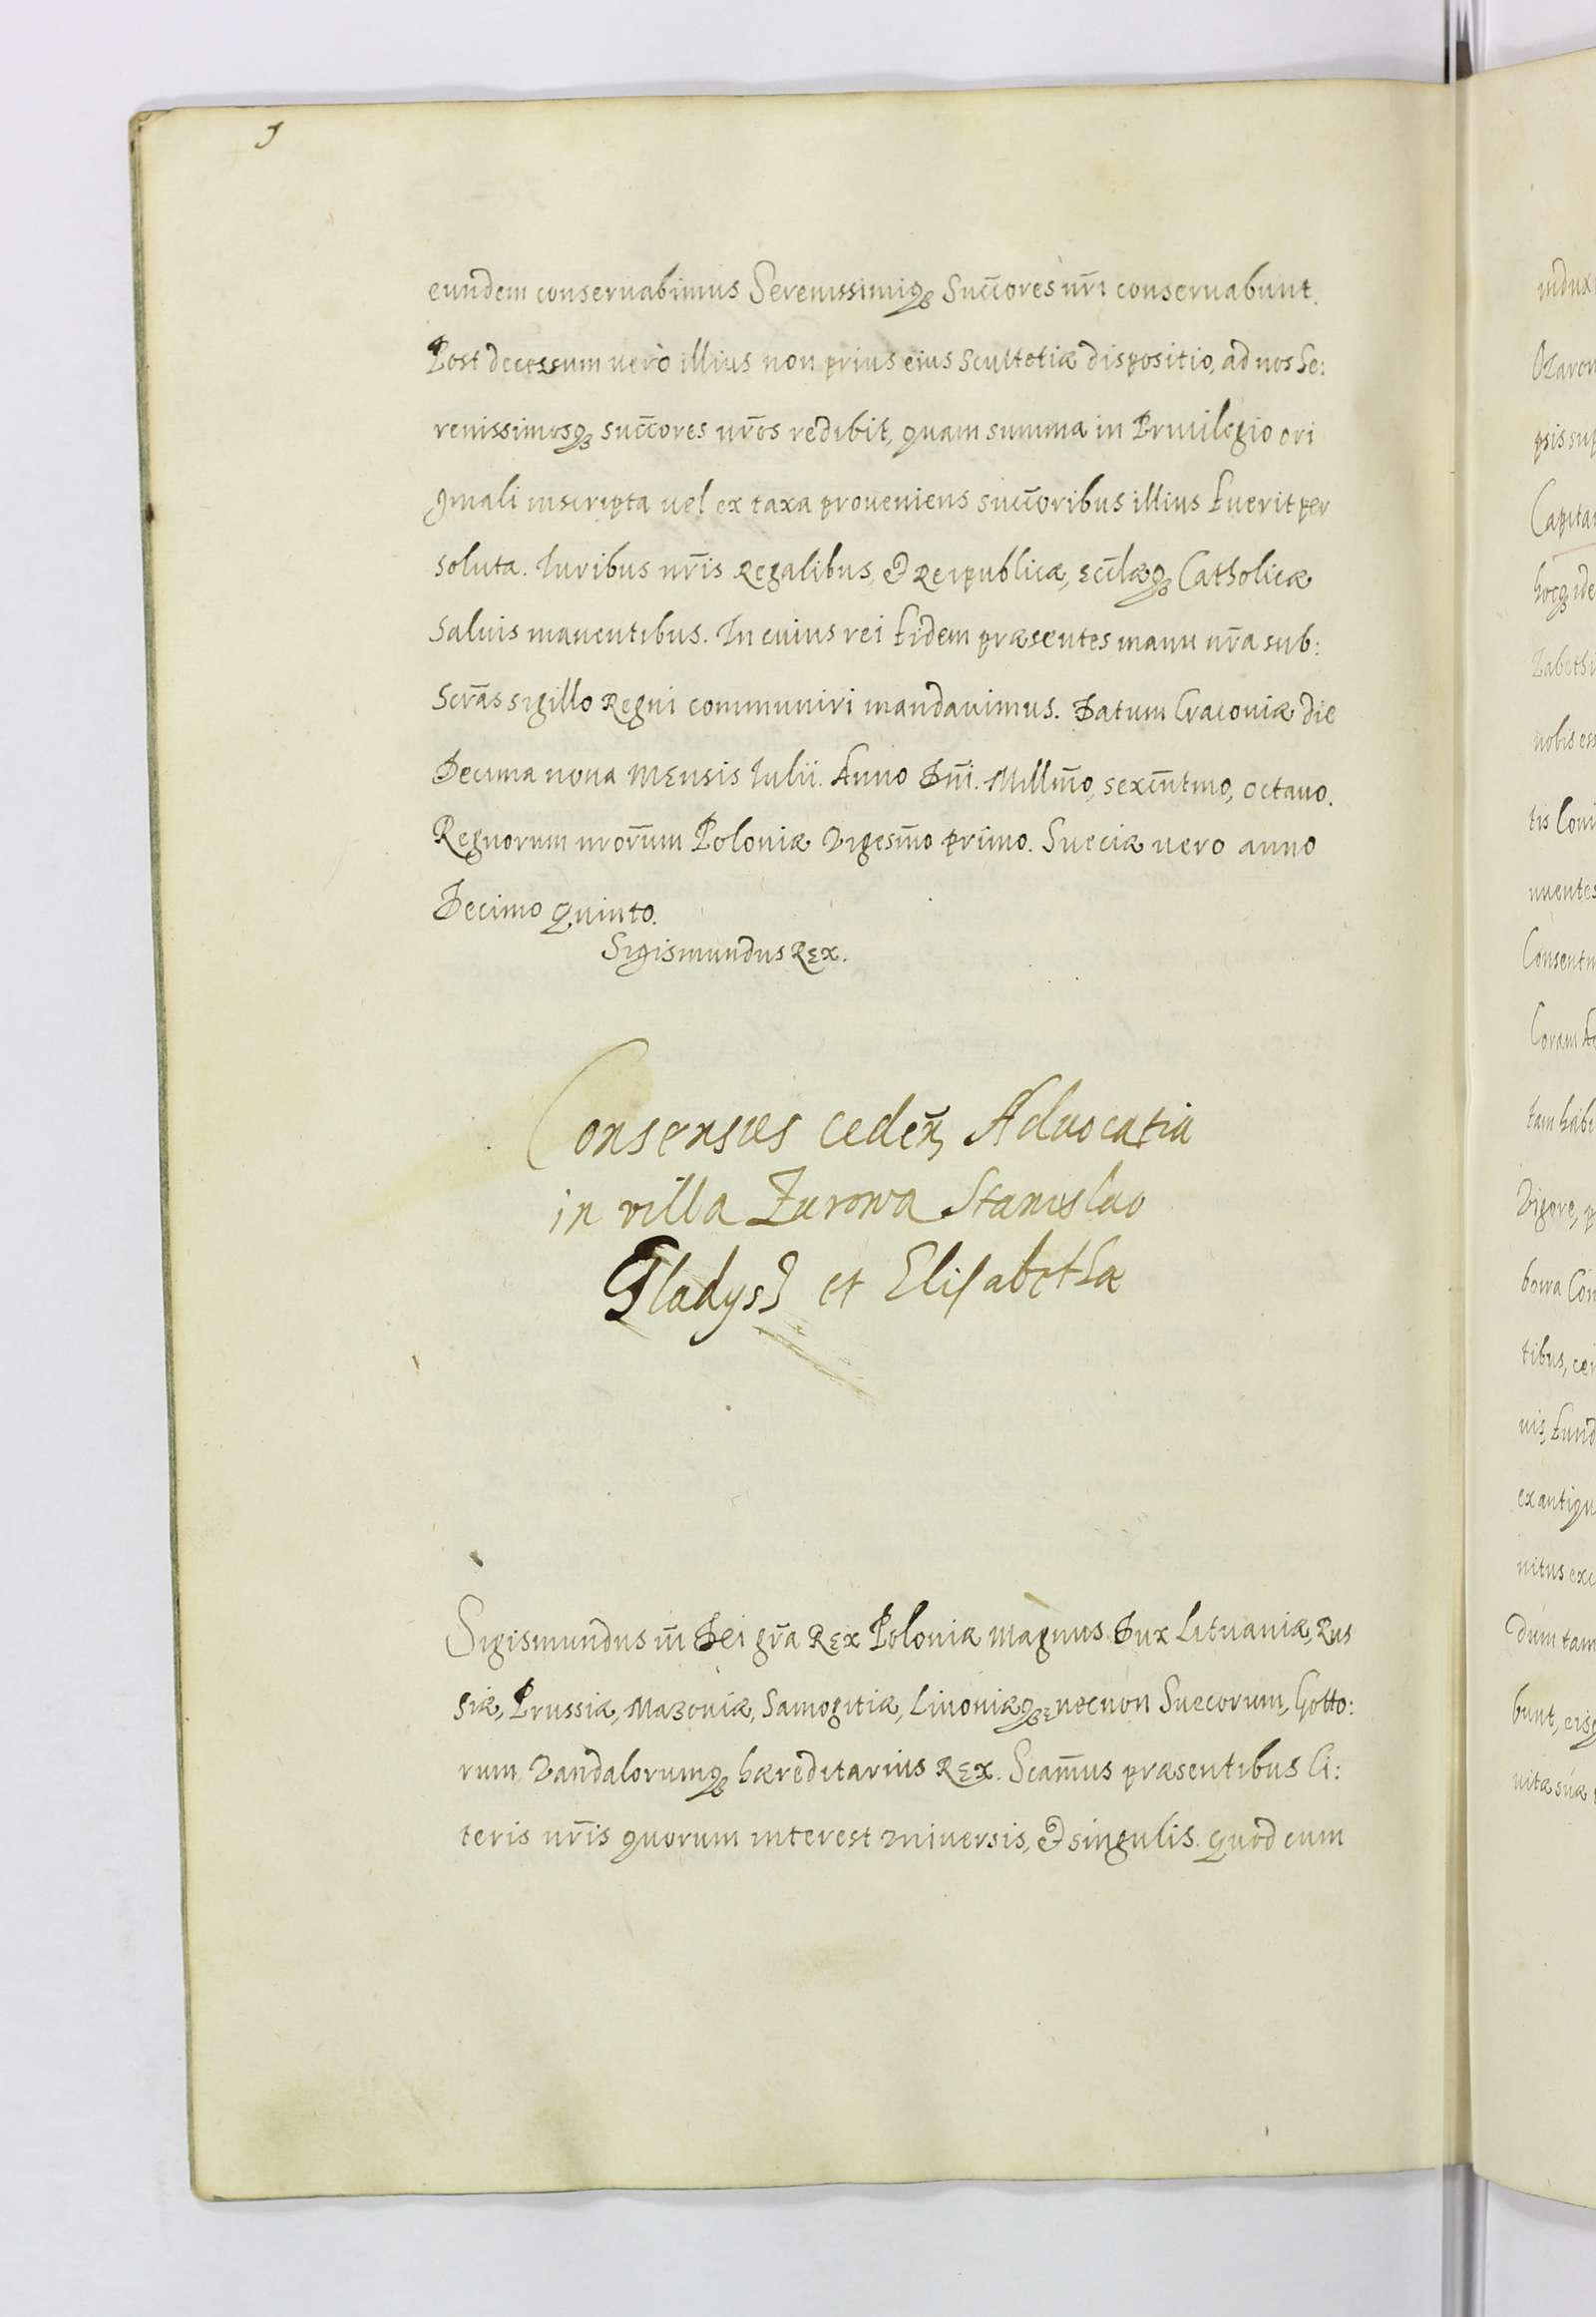 eundem conseruabimus Serenissimiq₃ Succ̄ores nr̄i conseruabunt.
Post decessum verò illius non prius eius Scultetiæ dispositio, ad nos Se:
renissimosq₃ succ̄ores nr̄os redibit, quam summa in Priuilegio ori
ginali inscripta vel ex taxa proueniens succ̄oribus illius fuerit per
soluta. Iuribus nr̄is Regalibus, & Reipublicæ, Eccl̄æq₃ Catholicæ
Saluis manentibus. In cuius rei fidem præsentes manu nr̄a sub:
Scr̄as sigillo Regni communiri mandauimus. Datum Cracouiæ die
Decima nona Mensis Iulii. Anno Dn̄i. Millm̄o, sexcn̄tmo, octauo.
Regnorum nror̄um Poloniæ Vigesm̄o primo. Sueciæ uero anno
Decimo quinto.
Sigismundus Rex.
Consensus ceden̄ Aduocatia
in villa Zurowa Stanislao
Gladysz et Elisabethæ
Sigismundus III Dei gr̄a Rex Poloniæ magnus Dux Lituaniæ, Rus
siæ, Prussiæ, Mazouiæ, Samogitiæ, Liuoniæq₃; necnon Suecorum, Gotto:
rum, Vandalorumq₃ hæreditarius Rex. Scam̄us præsentibus li:
teris nr̄is quorum interest vniuersis, & singulis. quod cum
indux
psis sup
Capita
hocq₃ ide
nobis es
nuentes
Coram
tam habe
Vigore, p
tibus, ce
exantiqu
nitus exc
Dum tam
bunt, eisq
uitæ suæ